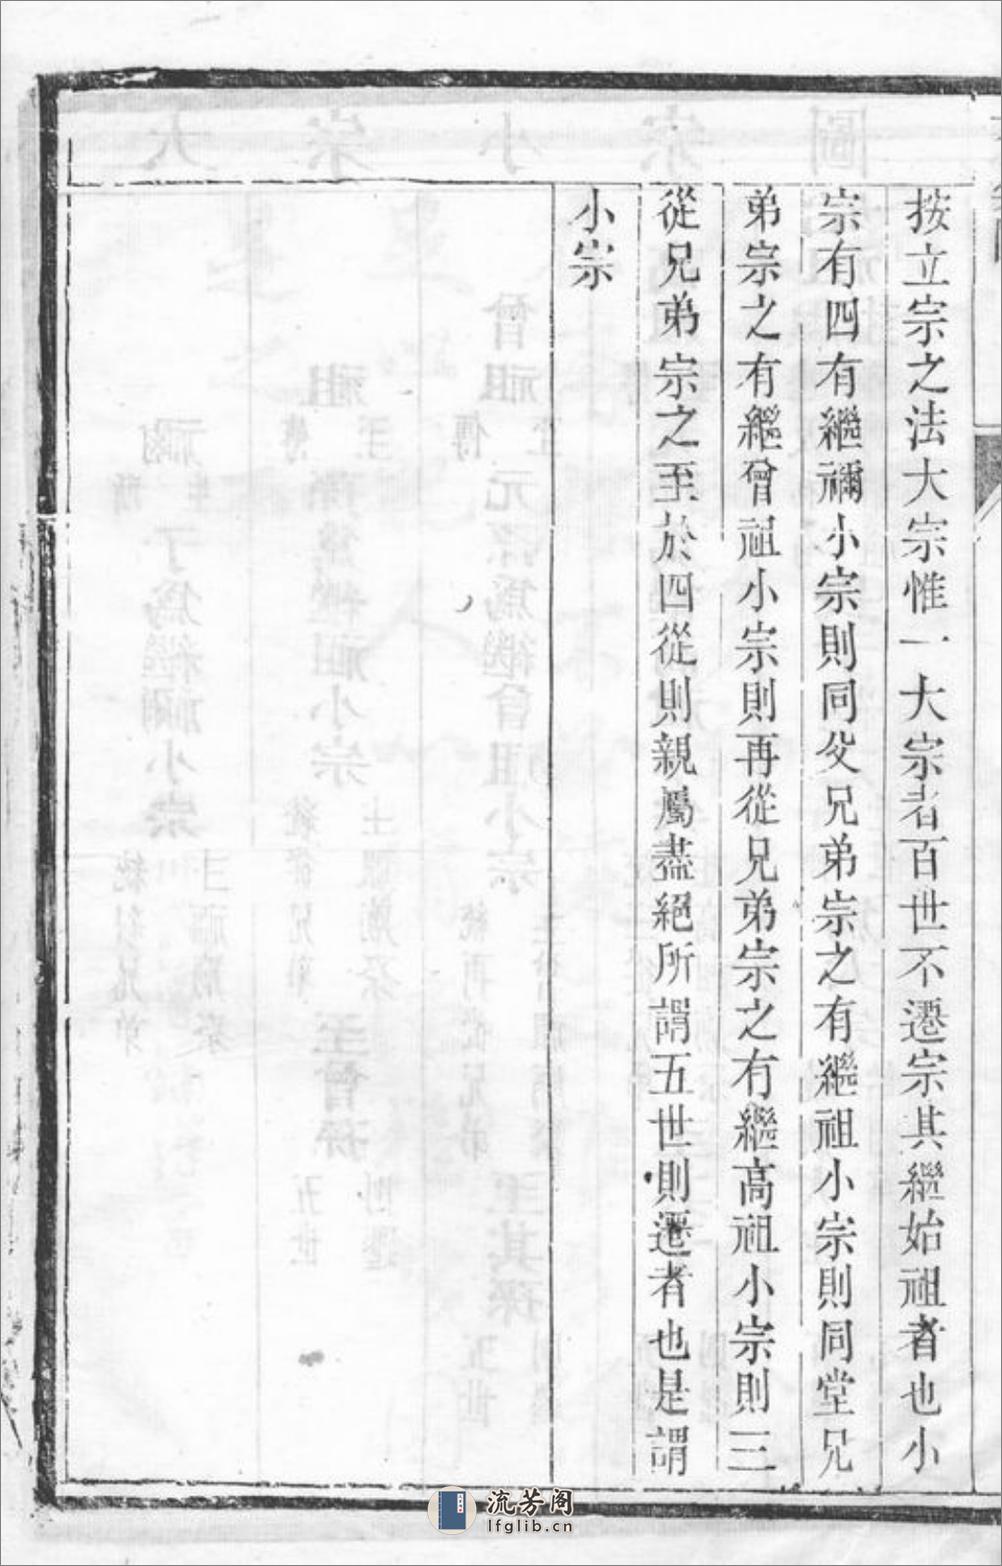 按立宗之法大宗惟一大宗者百世不遷宗其繼始祖者也小
宗有四有繼禰小宗則同父兄弟宗之有繼祖小宗則同堂兄
弟宗之有繼曾祖小宗則再從兄弟宗之有繼高祖小宗則三
從兄弟宗之至於四從則親屬盡絕所謂五世則遷者也是謂
小宗
流芳阁
lfglib.cn